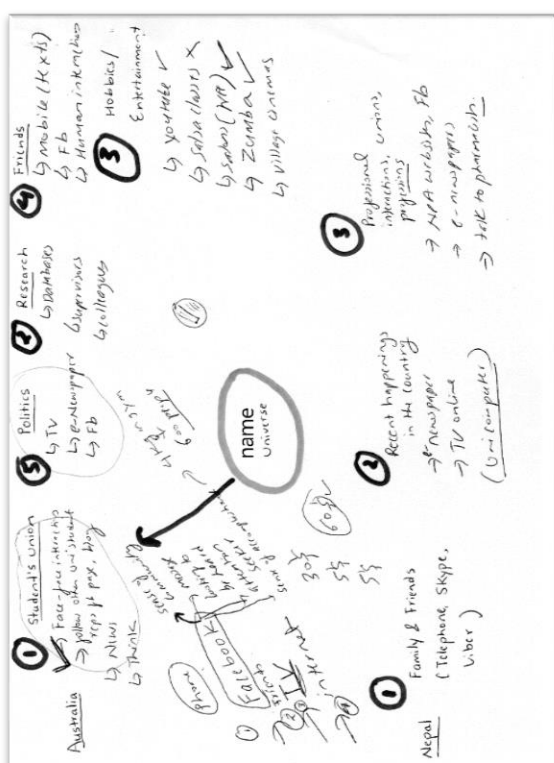 Australia
① Student's Union
→ Face-face internship
→ follow other uni student
reps fb page, blog
↳ News
↳ Think
⑤ Politics
↳ TV
↳ e-Newspaper
↳ Fb
② Research
↳ Databases
↳ supervisors
↳ colleagues
④ Friends
↳ mobile (texts)
↳ Fb
↳ Human interaction
③ Hobbies/
Entertainment
↳ YouTube ✓
↳ Salsa classes X
↳ ✓
↳ Zumba ✓
↳ Village cinemas
phone
① Facebook
friends
② TV
③ internet
④
sense of
community
30%
5%
5%
60%
name
Universe
Nepal
① Family & Friends
(Telephone, Skype,
Viber)
② Recent happenings
in the country
→ e-newspaper
→ TV online
(Uni computer)
③ Professional
interactions, unions,
professions
→ NPA website, Fb
→ e-newspapers
→ talk to pharmacists.